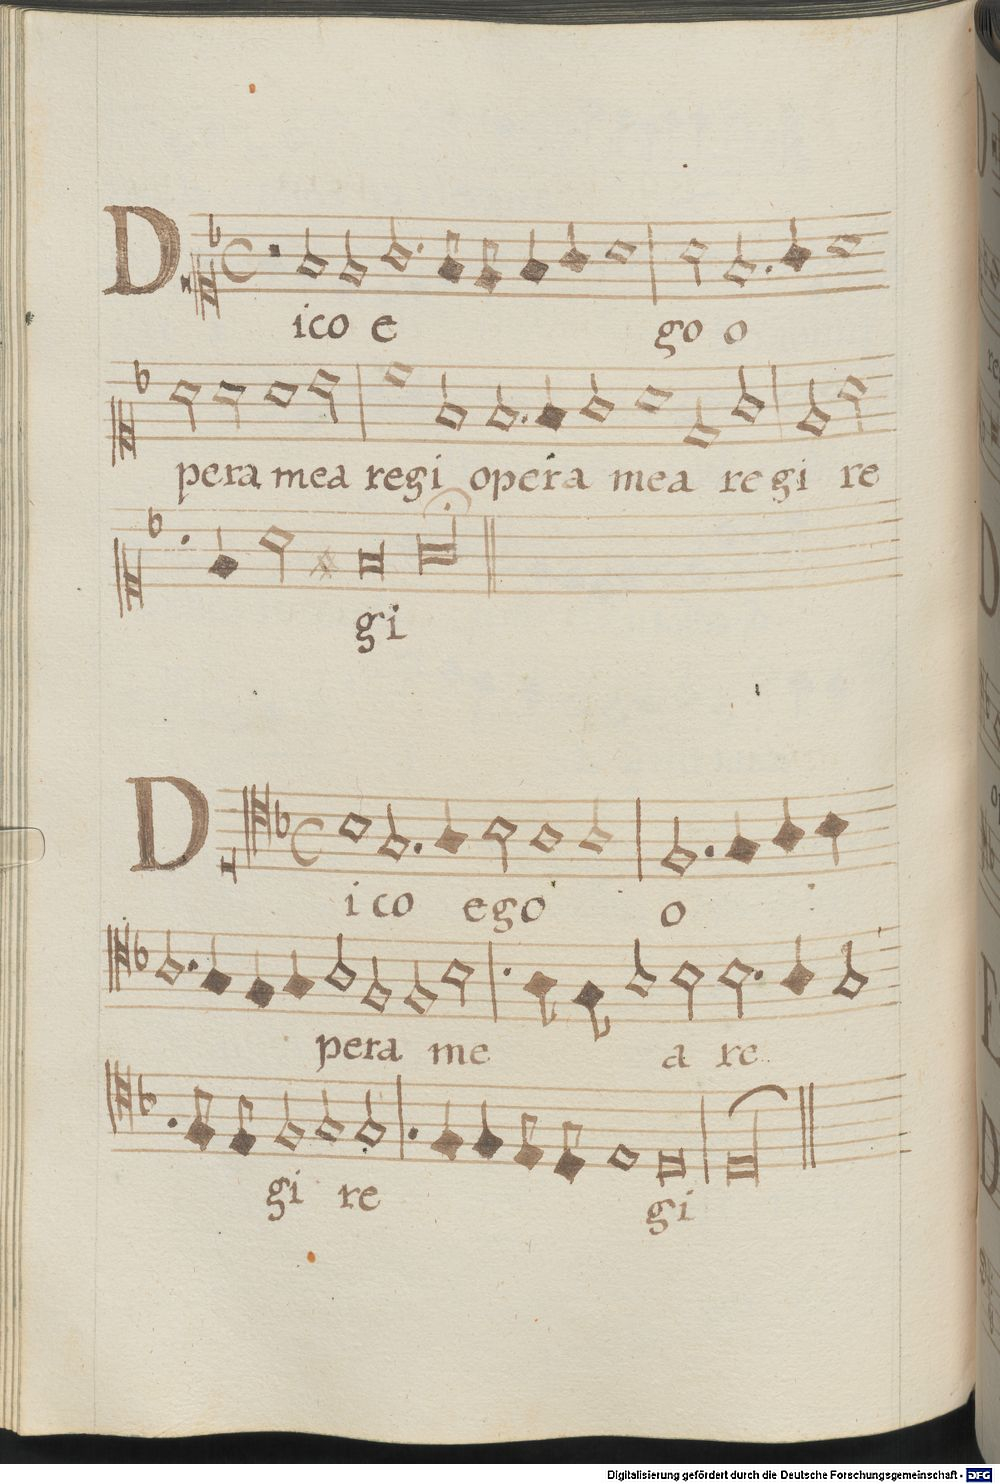 D
ico e go o
pera mea regi opera mea regi re
gi
D
ico ego o
pera me a re
gi re gi
Digitalisierung gefördert durch die Deutsche Forschungsgemeinschaft - DFG